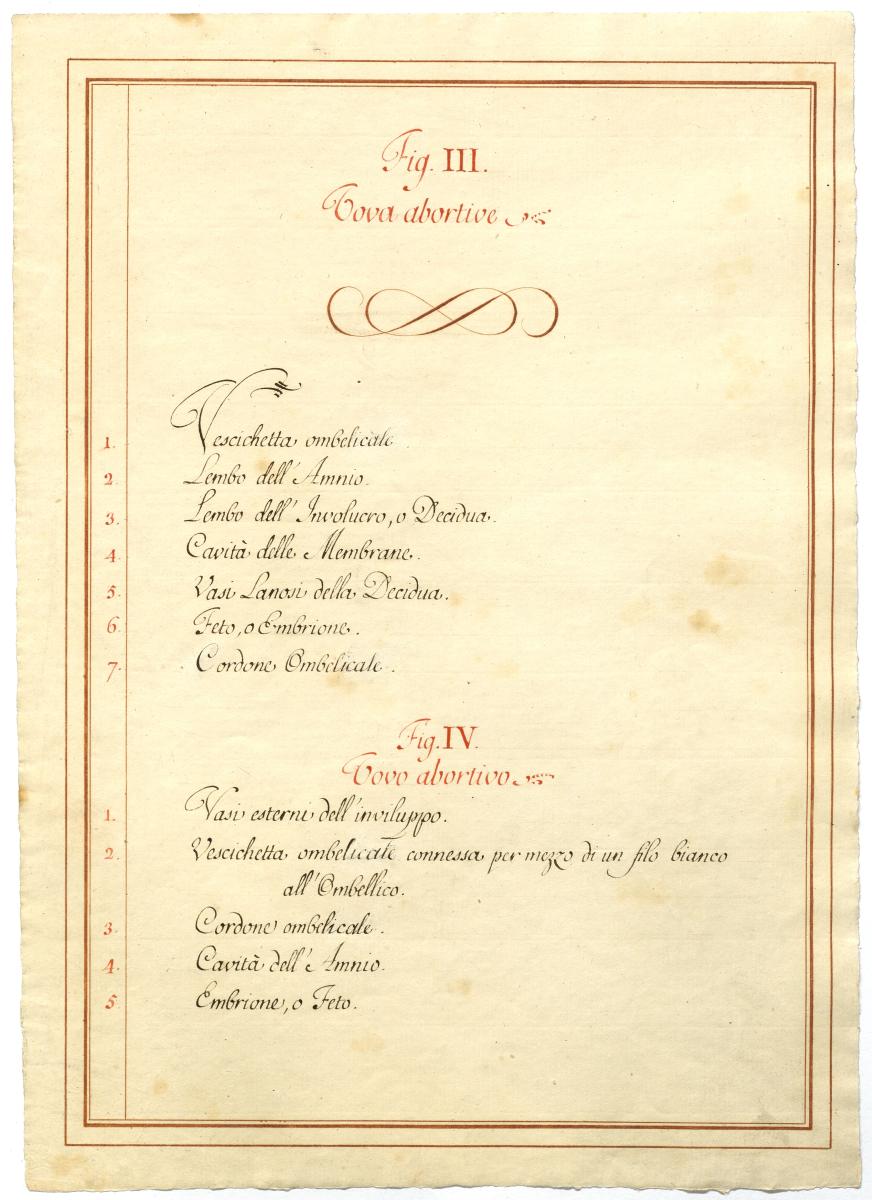 Fig. III.
Vova abortive
1. Vescichetta ombelicale
2. Lembo dell'Amnio.
3. Lembo dell'Involucro, o Decidua.
4. Cavità delle Membrane.
5. Vasi Lanosi della Decidua.
6. Feto, o Embrione.
7. Cordone Ombelicale.
Fig. IV.
Vovo abortivo
1. Vasi esterni dell'inviluppo.
2. Vescichetta ombelicale connessa per mezzo di un filo bianco
all'Ombellico.
3. Cordone ombelicale.
4. Cavità dell'Amnio.
5. Embrione, o Feto.